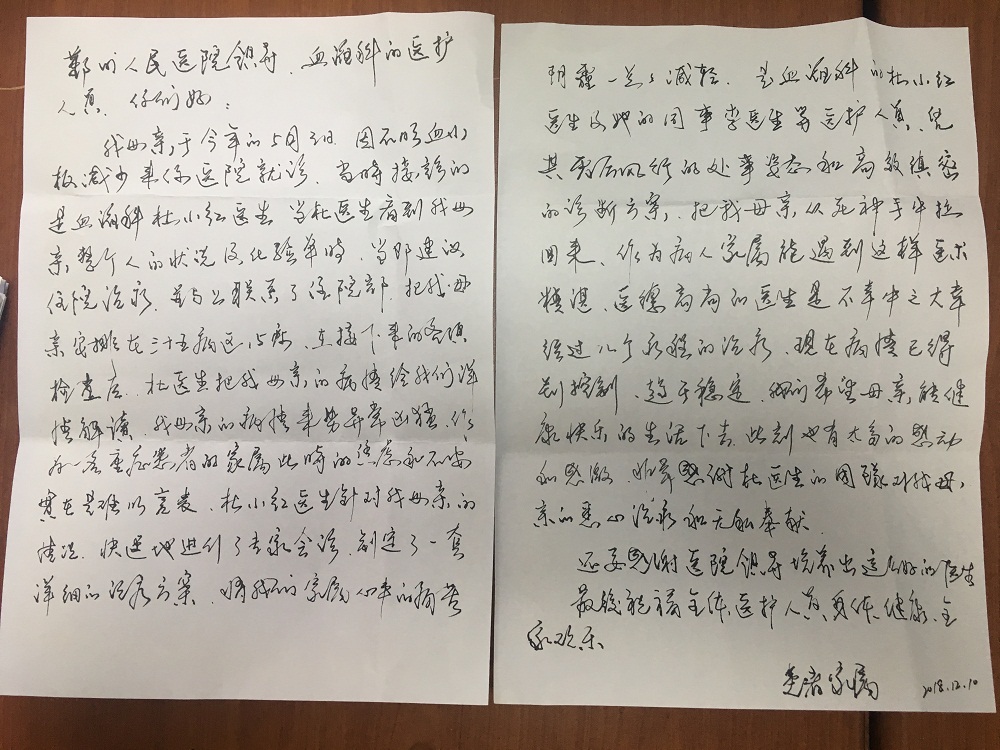 郑州人民医院领导、血液科的医护
人员、你们好：
我母亲于今年的5月3日、因不明血小
板减少来你医院就诊、当时接诊的
是血液科杜小红医生 当杜医生看到我母
亲整个人的状况及化验单时、当即建议
住院治疗、并马上联系了住院部、把我母
亲安排在三十五病区15床、在接下来的各项
检查后、杜医生把我母亲的病情给我们详
情解读、我母亲的病情来势异常凶猛、作
为一名重症患者的家属此时的焦虑和不安
实在是难以言表、杜小红医生针对我母亲的
情况、快速地进行了专家会诊、制定了一套
详细的治疗方案、将我们家属心中的
阴霾一点点减轻、是血液科的杜小红
医生及她的同事李医生等医护人员、凭
其雷厉风行的处事姿态和高效缜密
的诊断方案、把我母亲从死神手中拉
回来、作为病人家属能遇到这样医术
精湛、医德高尚的医生是不幸中之大幸
经过几个疗程的治疗、现在病情已得
到控制、趋于稳定、我们希望母亲能健
康快乐的生活下去、此刻也有太多的感动
和感激、非常感谢杜医生的团队对我母
亲的悉心治疗和无私奉献、
还要感谢医院领导培养出这么好的医生
最后祝福全体医护人员身体健康、全
家欢乐
患者家属 2018.12.10